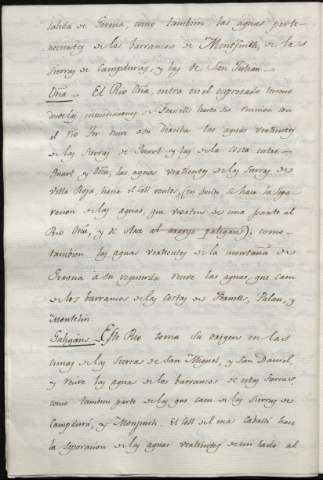 salida de Gerona, como tambien las aguas perte
necientes de los barrancos de Montjuich, de la
Sierras de Campdurás, y las de San Julian.
Oña. El Rio Oña, entra en el expresado tramo
desde las
el Rio Ter tiene à su derecha las aguas vertientes
de las Sierras de Quart y las de la Costa entre
Quart y Oña, las aguas vertientes de las Sierras de
Villa Roja hacia el Coll (en donde se hace la sepa
racion de las aguas que vierten de una parte al
Rio Oña, y de otra al arroyo Galigans); como
tambien las aguas vertientes de la montaña de
Gerona à su izquierda tiene las aguas que caen
de los barrancos de las Costas de Palau, y
Montilivi.
Galigans Este Rio toma su origen en las
cimas de las Sierras de San Miguel, y San Daniel,
y tiene las aguas de los barrancos de estas Sierras,
como tambien parte de las que caen de las Sierras de
Campdurá, y Monjuich. El Coll del mas Caballi hace
la separacion de las aguas vertientes de un lado al